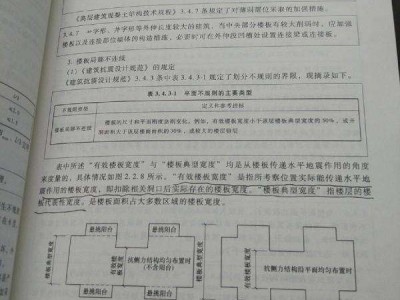 《高层建筑混凝土结构技术规程》3.4.7条规定了对薄弱部位采取的加强措施。
3.4.7 艹字形、井字形等外伸长度较大的建筑，当中央部分楼板有较大削弱时，应加强
楼板以及连接部位墙体的构造措施，必要时可在外伸段凹槽处设置连接梁或连接板。
3. 楼板局部不连续
《建筑抗震设计规范》的规定
《建筑抗震设计规范》3.4.3条中表3.4.3-1规定了划分不规则的界限，现摘录如下。
表3.4.3-1 平面不规则的主要类型
不规则类型 定义和参考指标
楼板局部不连续 楼板的尺寸和平面刚度急剧变化，例如，有效楼板宽度小于该层楼板典型宽度的50%，或开
洞面积大于该层楼面面积的30%，或较大的楼层错层
表中所述“有效楼板宽度”与“楼板典型宽度”均是从楼板传递水平地震作用的角度
来度量的，具体情况如图2.2.8所示，“有效楼板宽度”是指所考察位置实际能传递水平地
震作用的楼板宽度，即扣除相关洞口后实际存在的楼板宽度。“楼板典型宽度”指楼层的楼
板代表性宽度，是楼板面积占大多数区域的楼板宽度。
悬挑阳台
悬挑阳台
楼板典型宽度
有效楼板宽度
抗侧力结构均匀布置时
(不含阳台)
楼板典型宽度
有效楼板宽度
抗侧力结构沿平面均匀布置时
悬挑阳台
悬挑阳台